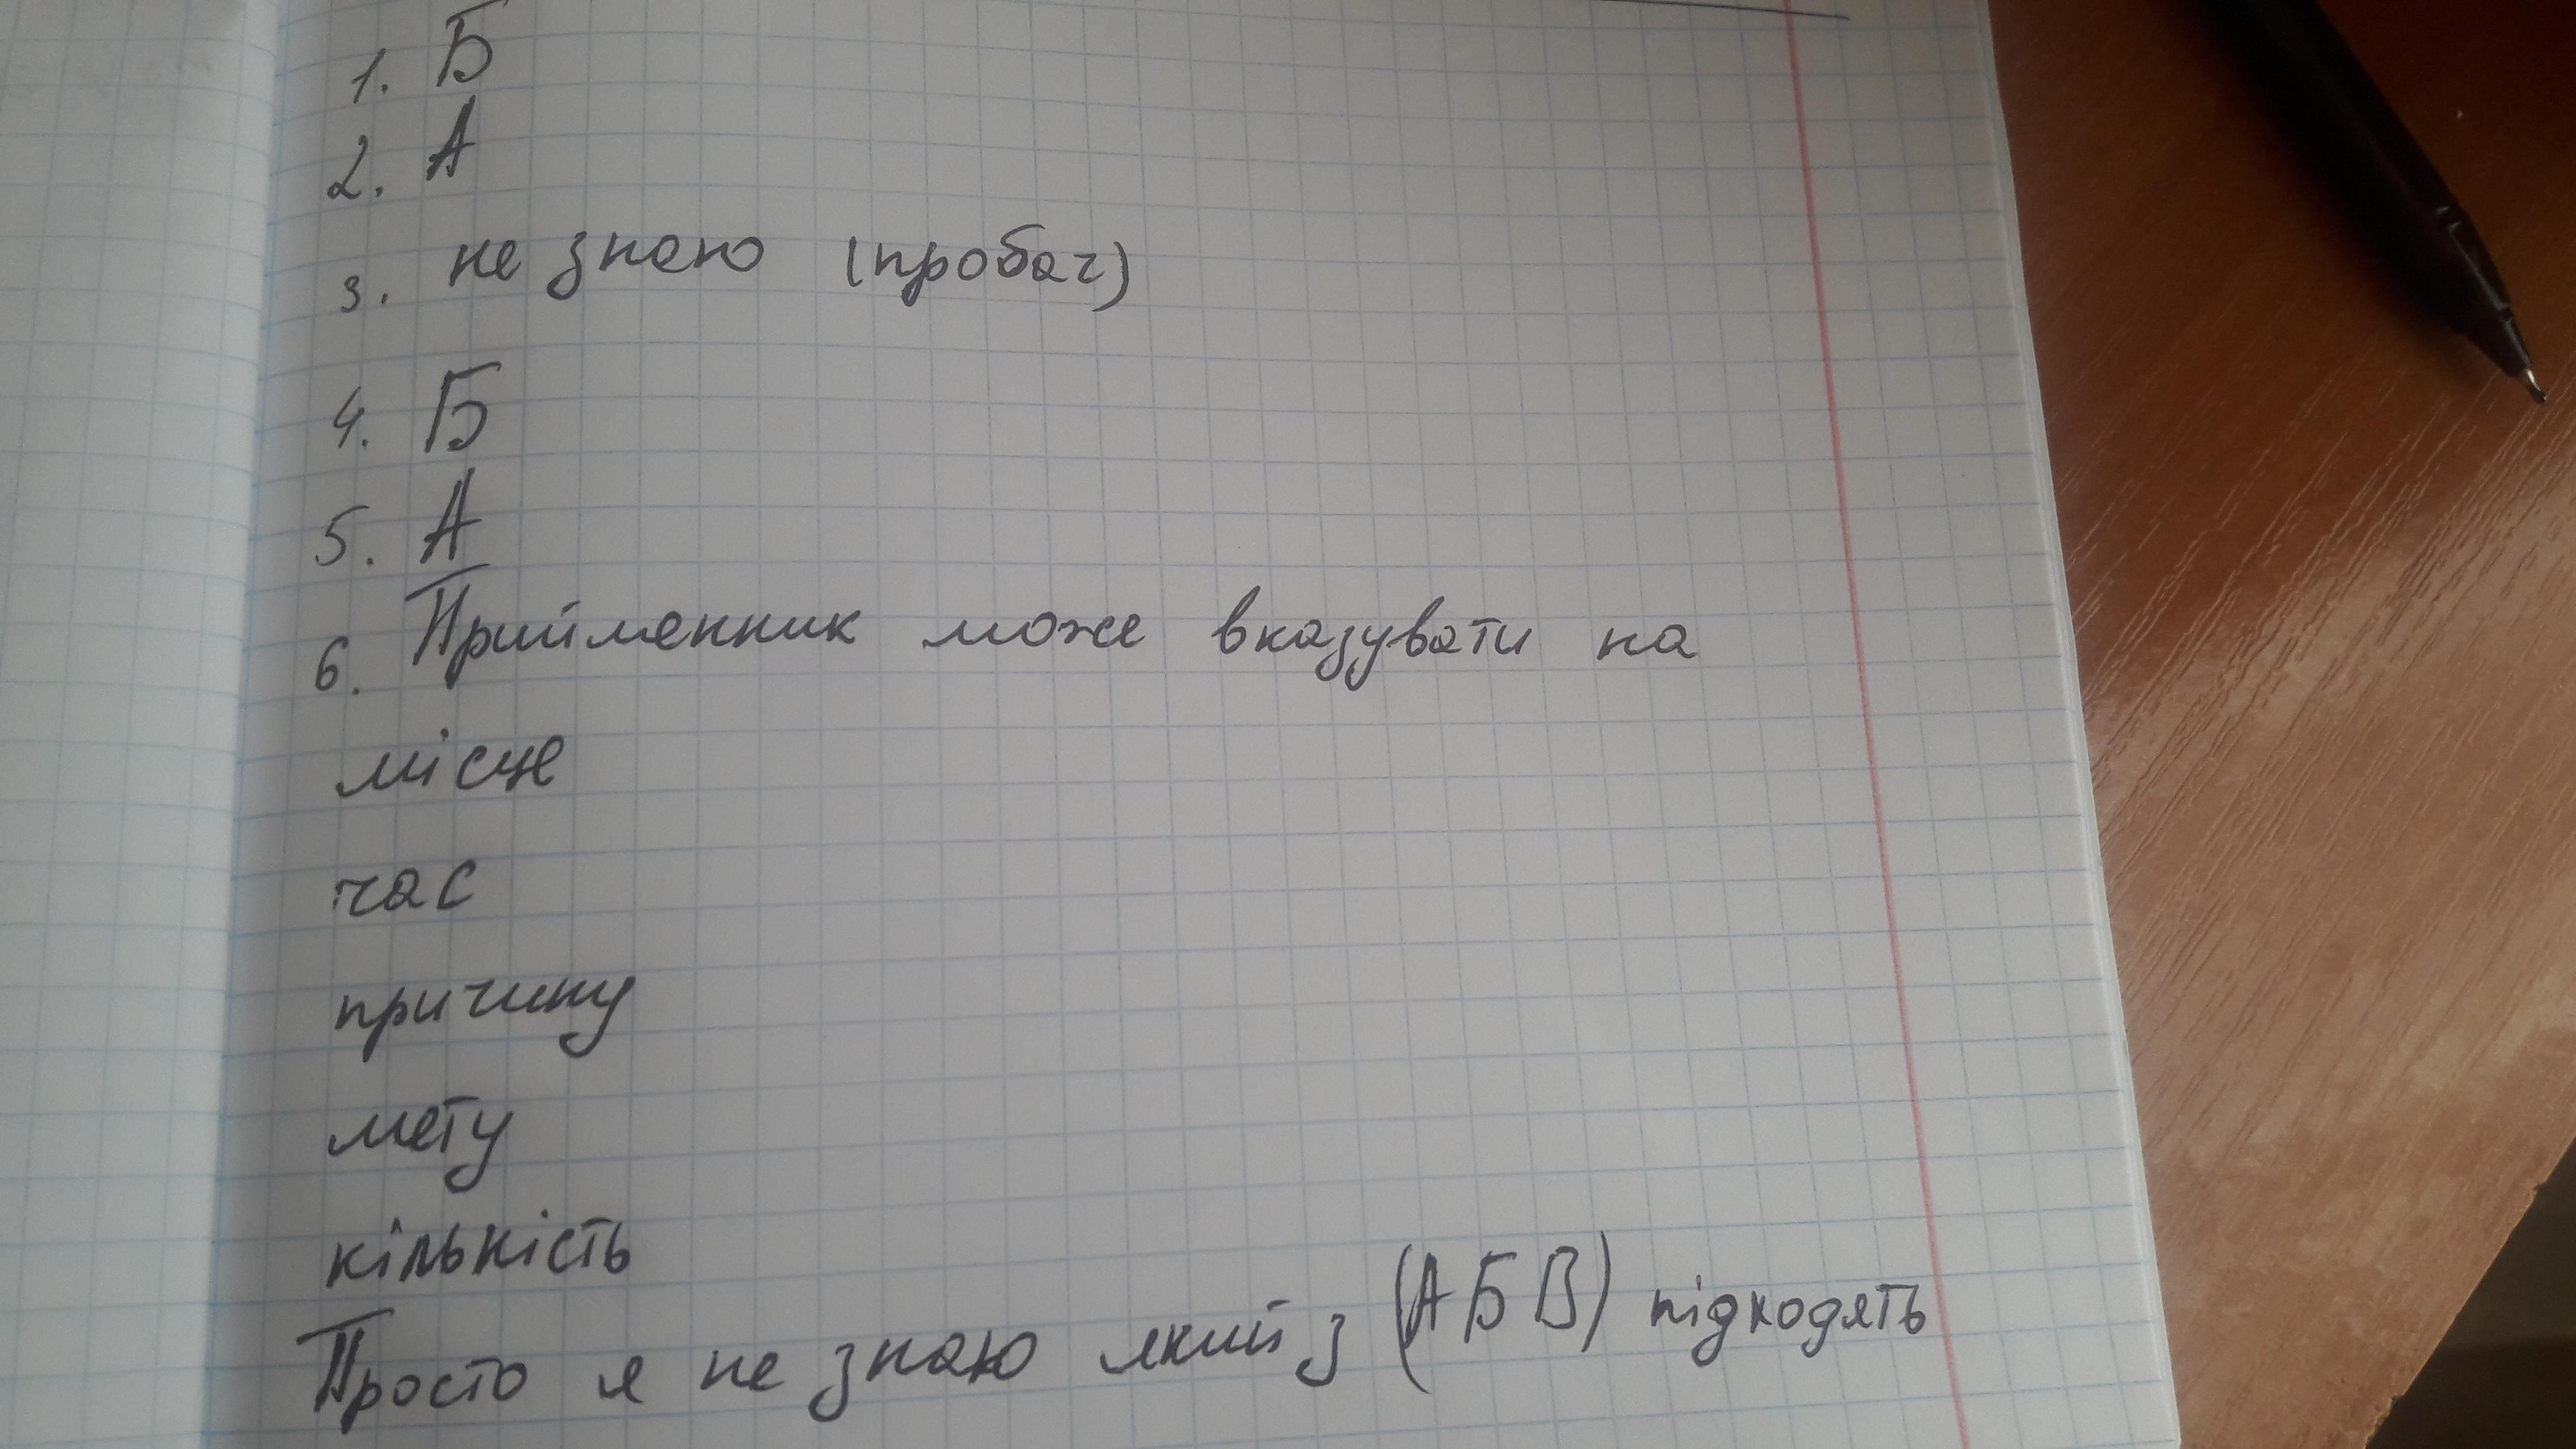 1. Б
2. А
3. не знаю (пробач)
4. Б
5. А
6. Прийменник може вказувати на
місце
час
причину
мету
кількість
Просто я не знаю який з (АБВ) підходять